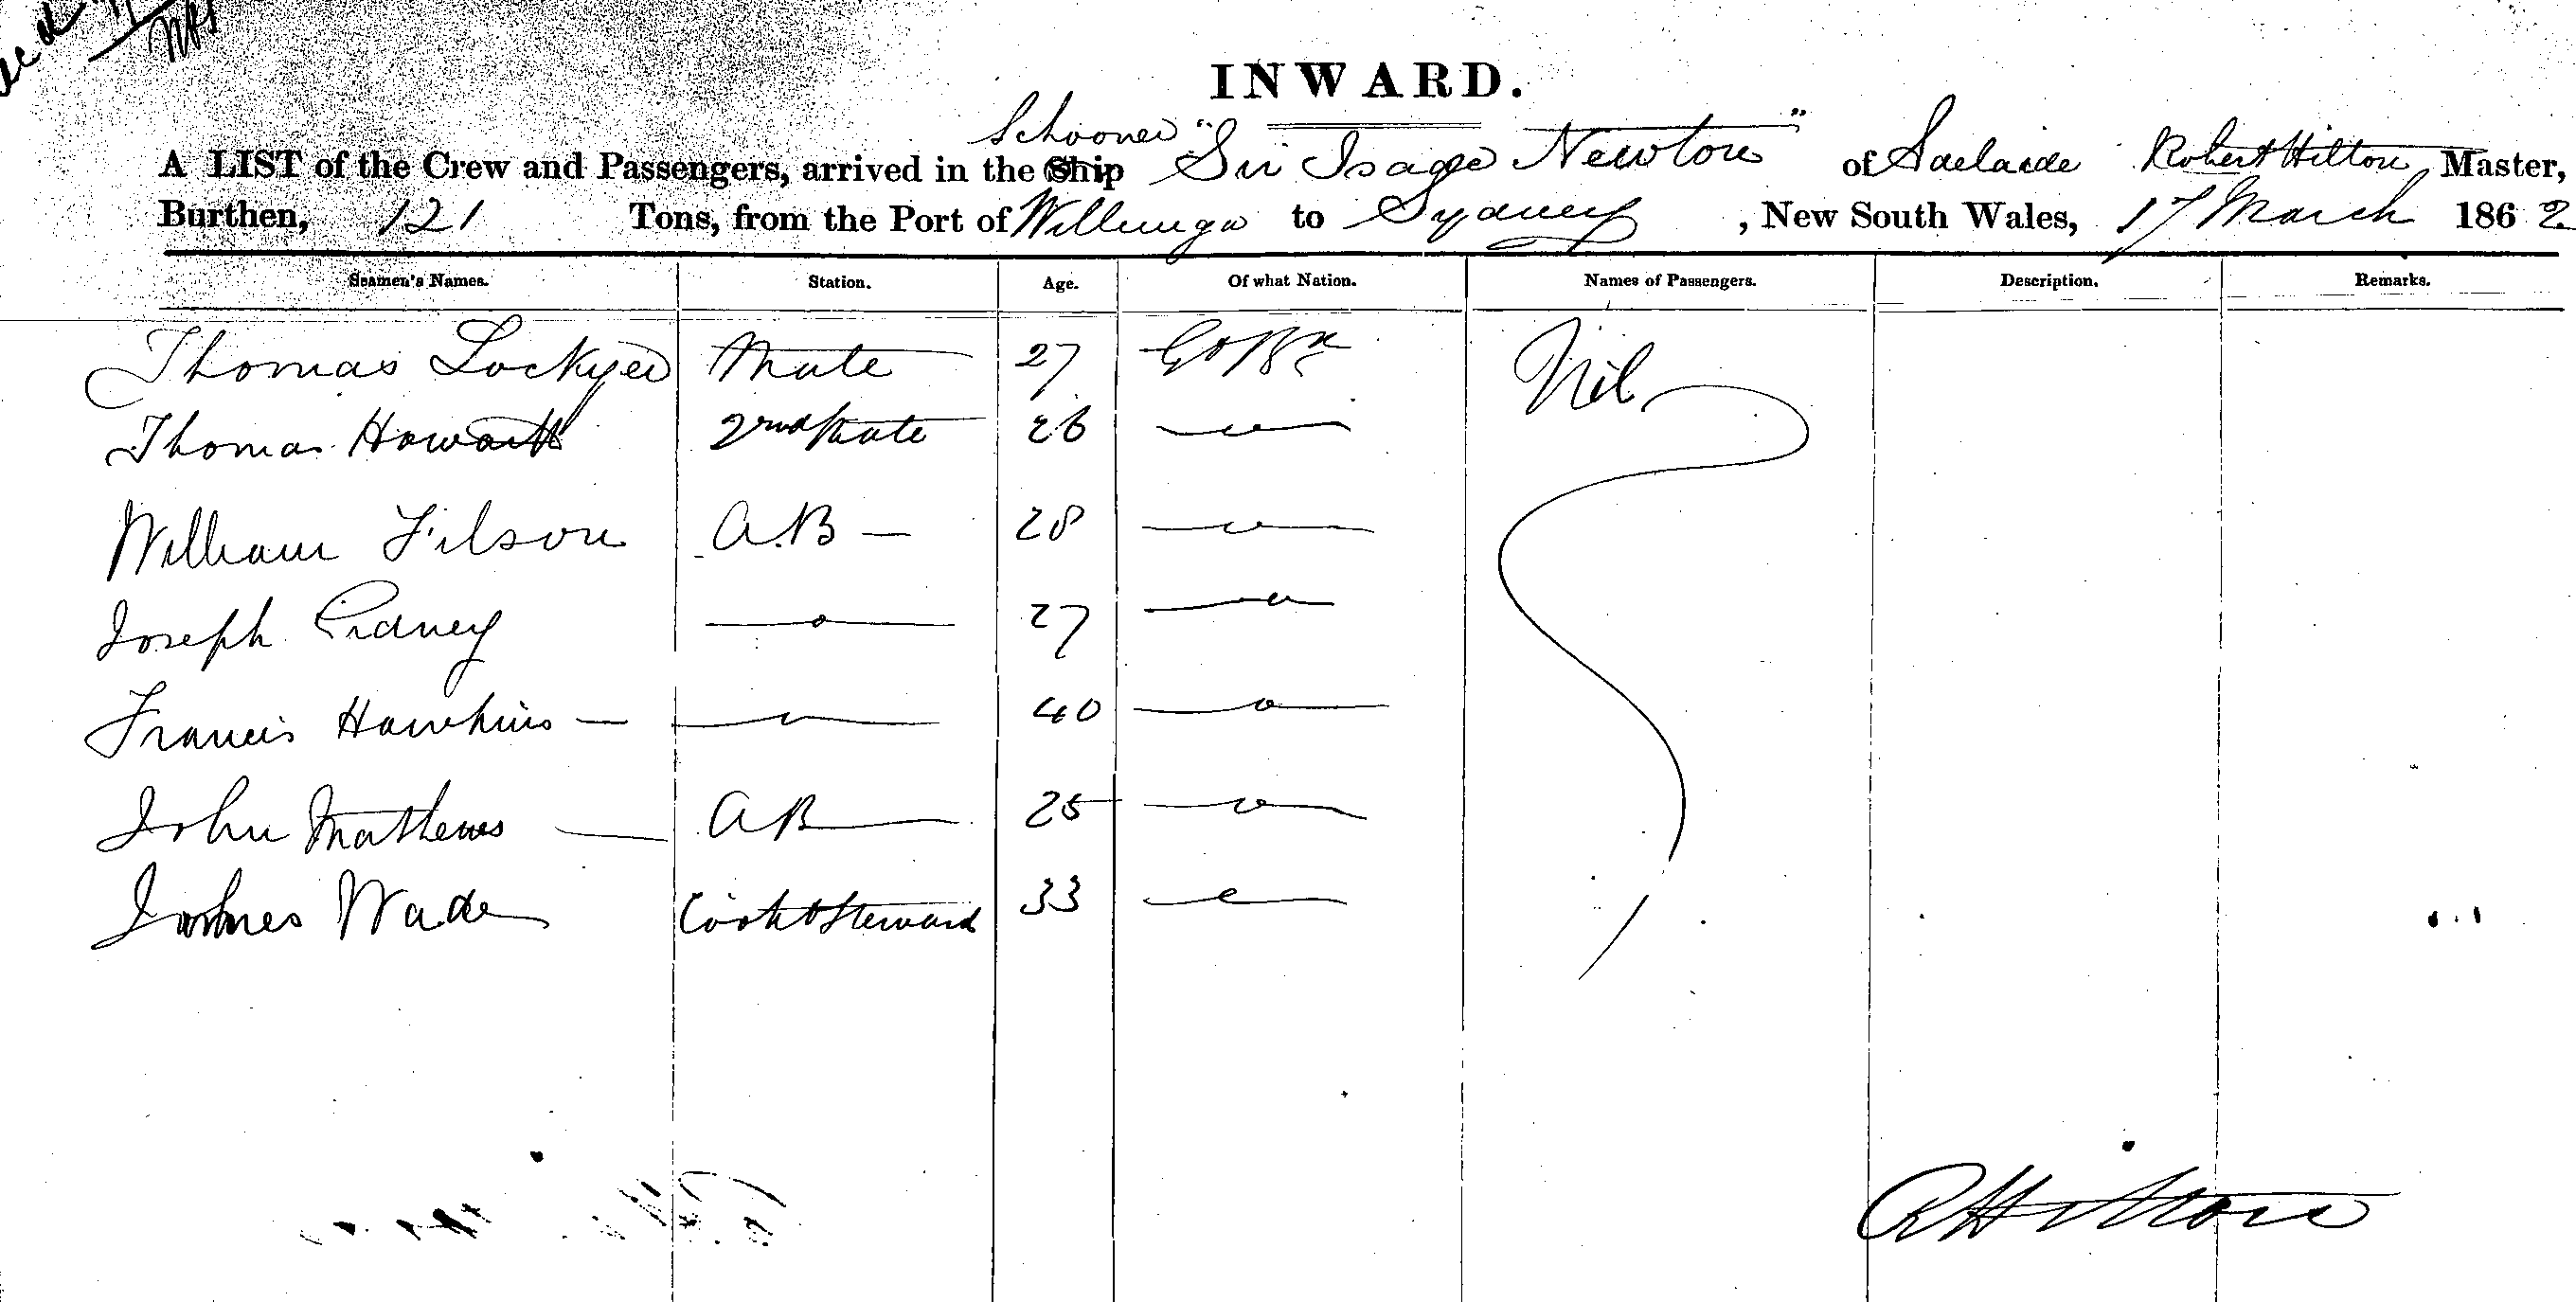 INWARD.
Schooner
A LIST of the Crew and Passengers, arrived in the Ship "Sir Isaac Newton" of Adelaide Robert Hilton Master,
Burthen, 121 Tons, from the Port of Willunga to Sydney, New South Wales, 17 March 1862
Seamen's Names. Station. Age. Of what Nation. Names of Passengers. Description. Remarks.
Thomas Lockyer Mate 27 Nil
Thomas Howarth 2nd Mate 26
William Filson A.B — 28
Joseph Pidney 27
Francis Hawkins — 40
John Mathews — AB 25
James Wade Cook & Steward 33
R Hilton